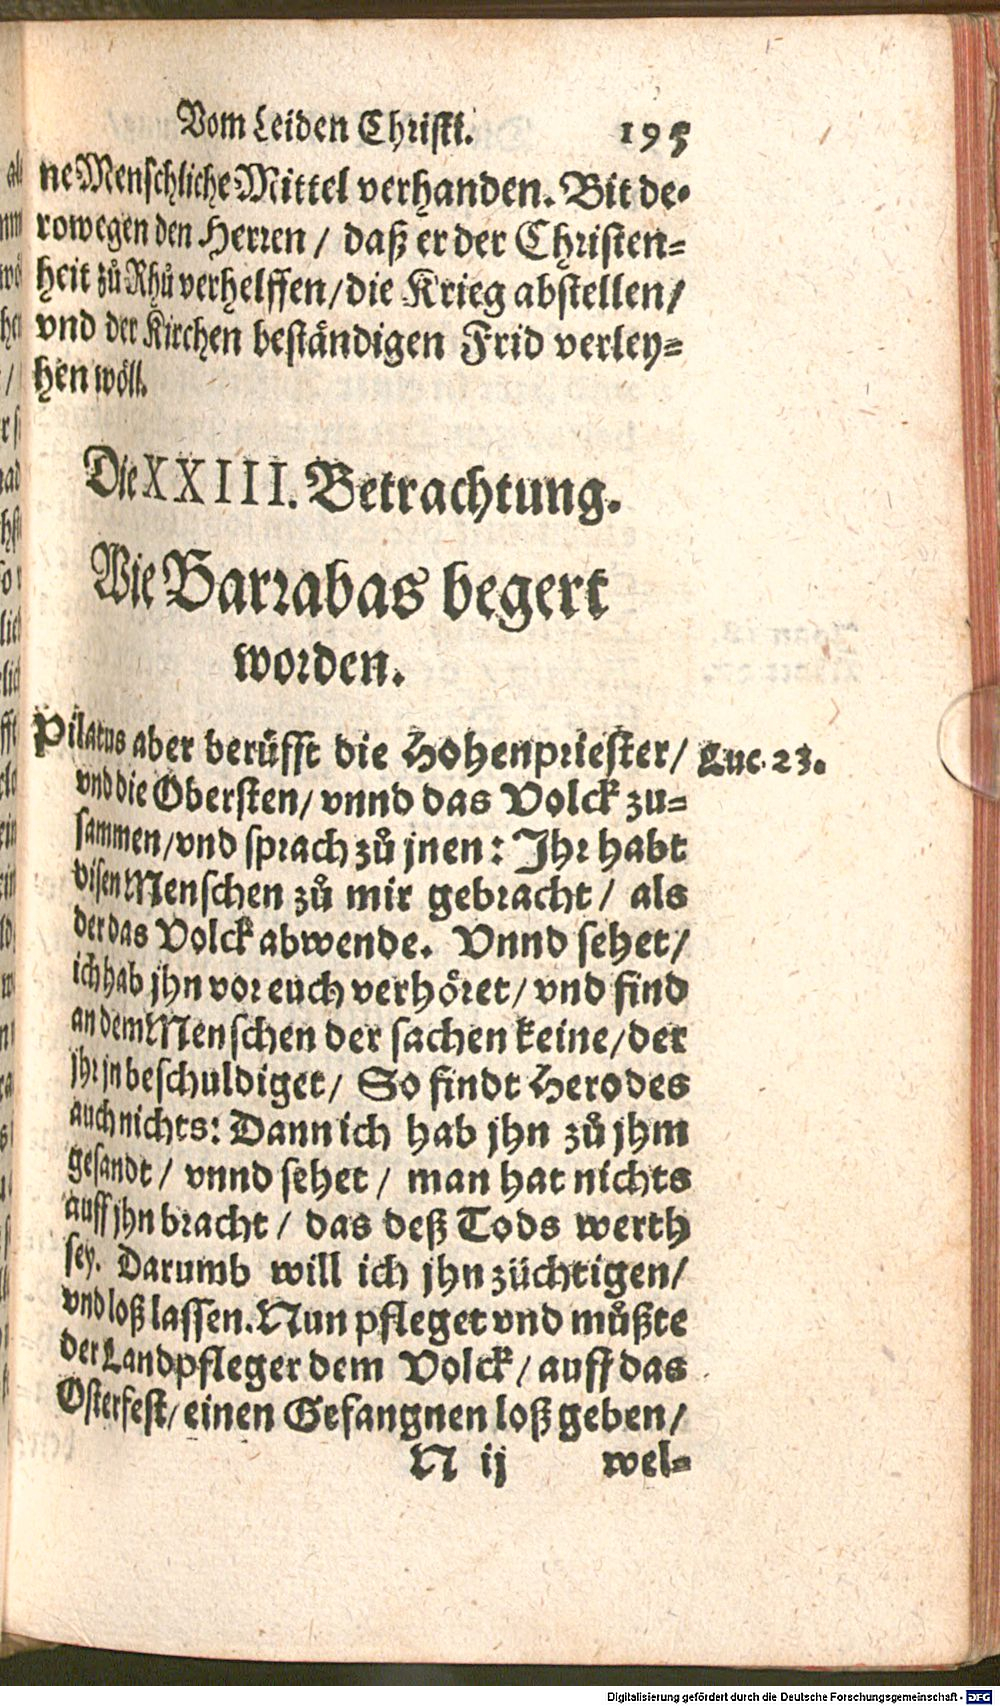 Vom Leiden Christi. 195
ne Menschliche Mittel verhanden. Bit de-
rowegen den Herren / daß er der Christen-
heit zů Rhů verhelffen / die Krieg abstellen /
vnd der Kirchen beståndigen Frid verley-
hen wöll.
Die XXIII. Betrachtung.
Wie Barrabas begert
worden.
Pilatus aber berůfft die Hohenpriester / Luc. 23.
vnd die Obersten / vnnd das Volck zu-
sammen / vnd sprach zů jnen : Ihr habt
disen Menschen zů mir gebracht / als
der das Volck abwende. Vnnd sehet /
ich hab jhn vor euch verhöret / vnd find
an dem Menschen der sachen keine / der
jhr jn beschuldiget / So findt Herodes
auch nichts : Dann ich hab jhn zů jhm
gesandt / vnnd sehet / man hat nichts
auff jhn bracht / das deß Tods werth
sey. Darumb will ich jhn züchtigen /
vnd loß lassen. Nun pfleget vnd můßte
der Landpfleger dem Volck / auff das
Osterfest / einen Gefangnen loß geben /
N ij wel-
Digitalisierung gefördert durch die Deutsche Forschungsgemeinschaft - DFG